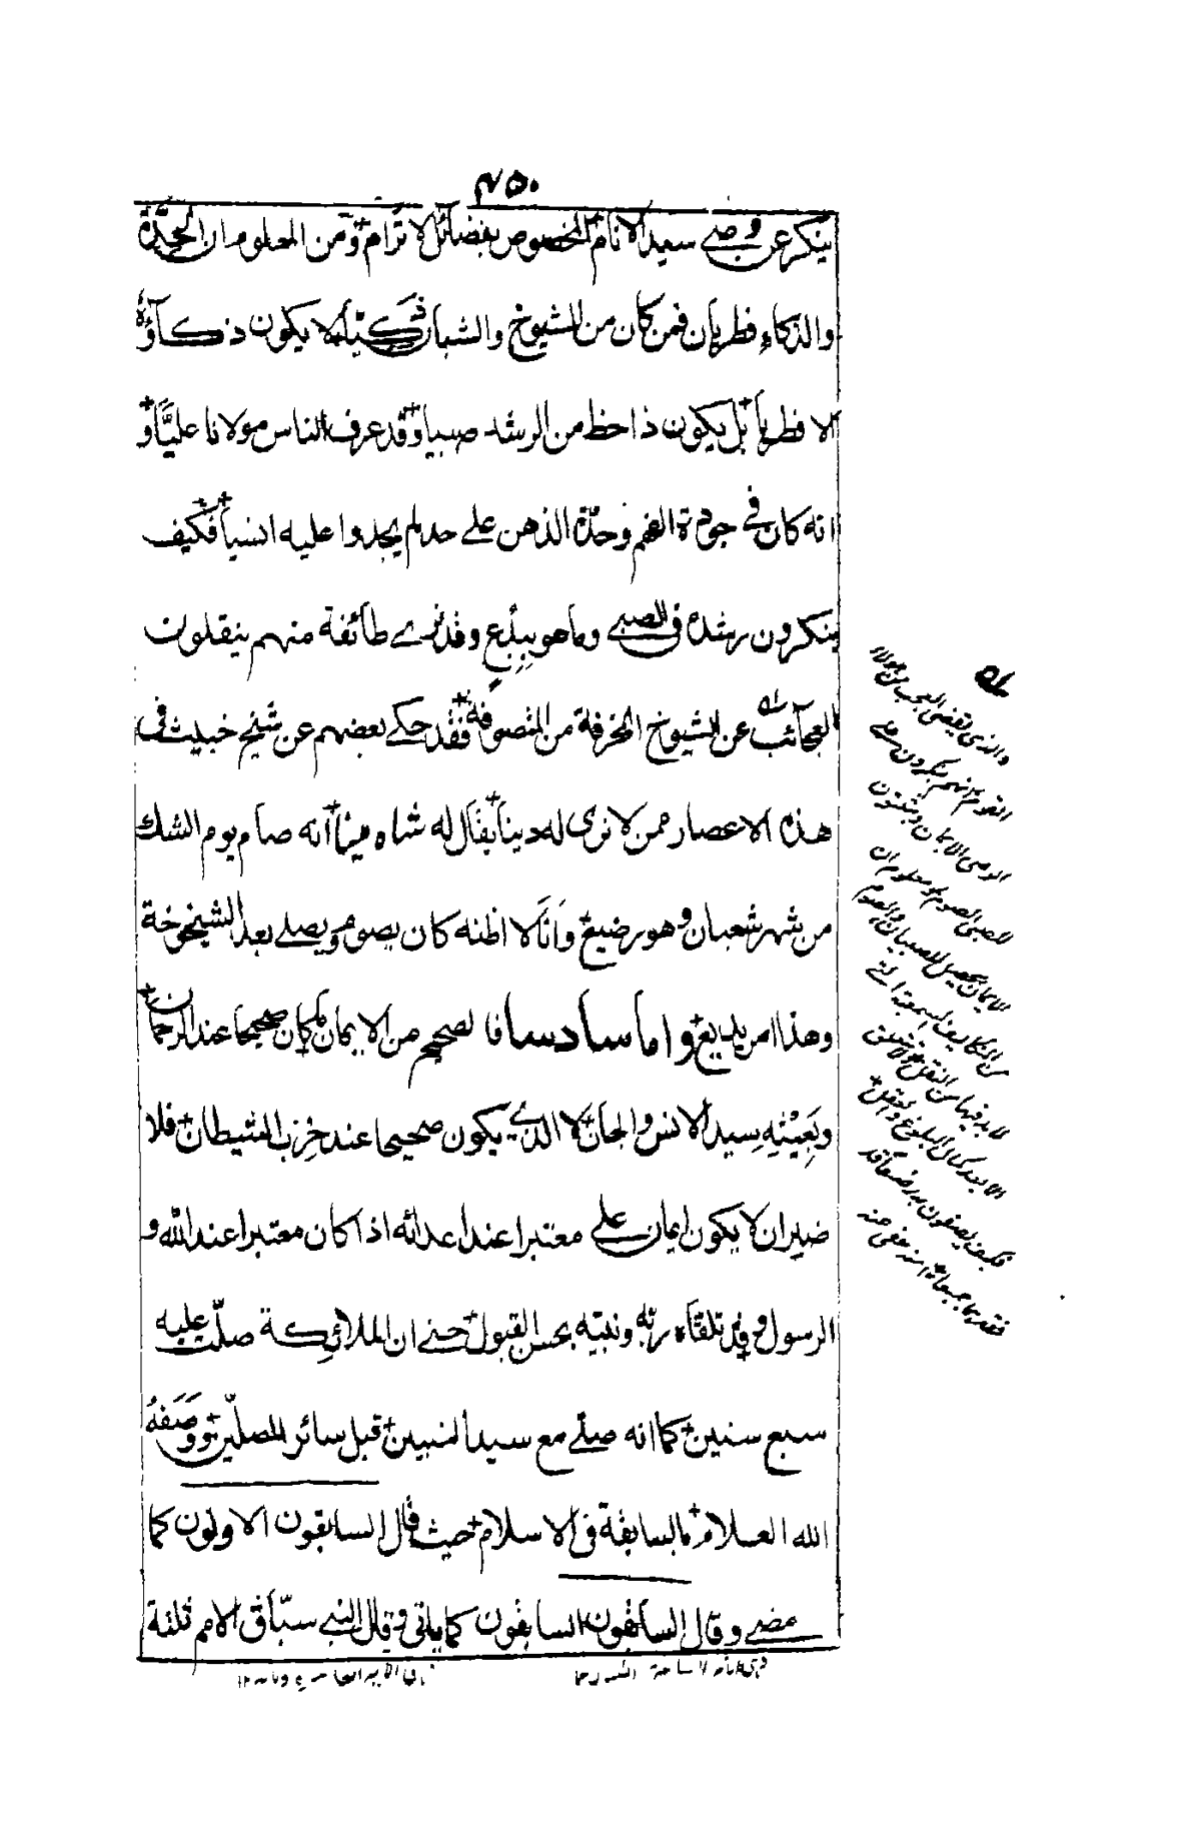 ۴۵۰
ينكر عن وصی سيد الانام المخصوص بفضائل لا ترام ومن المعلوم ان الحدّة
والذكاء فطريان فمن كان من الشيوخ والشبان ذكيّا لا يكون ذكآؤه
الا فطريا بل يكون ذا حظ من الرشد صبيا وقد عرف الناس مولانا عليّا و
انه كان فی جودة الفهم وحدّة الذهن علی حد لم يجدوا عليه انسيا فكيف
ينكرون رشده فی الصبی وما هو ببِدْعٍ وقد نری طائفة منهم ينقلون
العجآئب عن الشيوخ المخرفة من المتصوفة فقد حكی بعضهم عن شيخ خبيث فی
هذه الاعصار ممن لا نری له دينا يقال له شاه مينا انه صام يوم الشك
من شهر شعبان وهو رضيع وانا لا اظنه كان يصوم ويصلی بعد الشيخوخة
وهذا امر بديع واما سادسا فالصحيح من الايمان ما كان صحيحا عند الرحمان
وبَعِيْنِهِ سيد الانس والجان لا الذی يكون صحيحا عند حزب الشيطان فلا
ضير ان لا يكون ايمان علی معتبرا عند اعدائه اذا كان معتبرا عند الله و
الرسول وقد تلقاه ربّه ونبيّه بحسن القبول حتی ان الملائكة صلّت عليه
سبع سنين كما انه صلّی مع سيد النبيين قبل سائر المصلّين ووَصَفَهُ
الله العلام بالسابقة فی الاسلام حيث قال السابقون الاولون كما
مضی وقال السابقون السابقون كما ياتی وقال النبی سبّاق الامم ثلثة
والذی يقضی العجب من هؤلاء
القوم انهم ينكرون علی
الوصی الايمان ويثبتون
للصبی الصوم ومعلوم ان
الايمان يحصل للصبيان والصوم
من التكاليف السمعية التی
لا بد فيها من النقل
الا بعد كمال البلوغ والعقل
فكيف يصفون به رضيعا